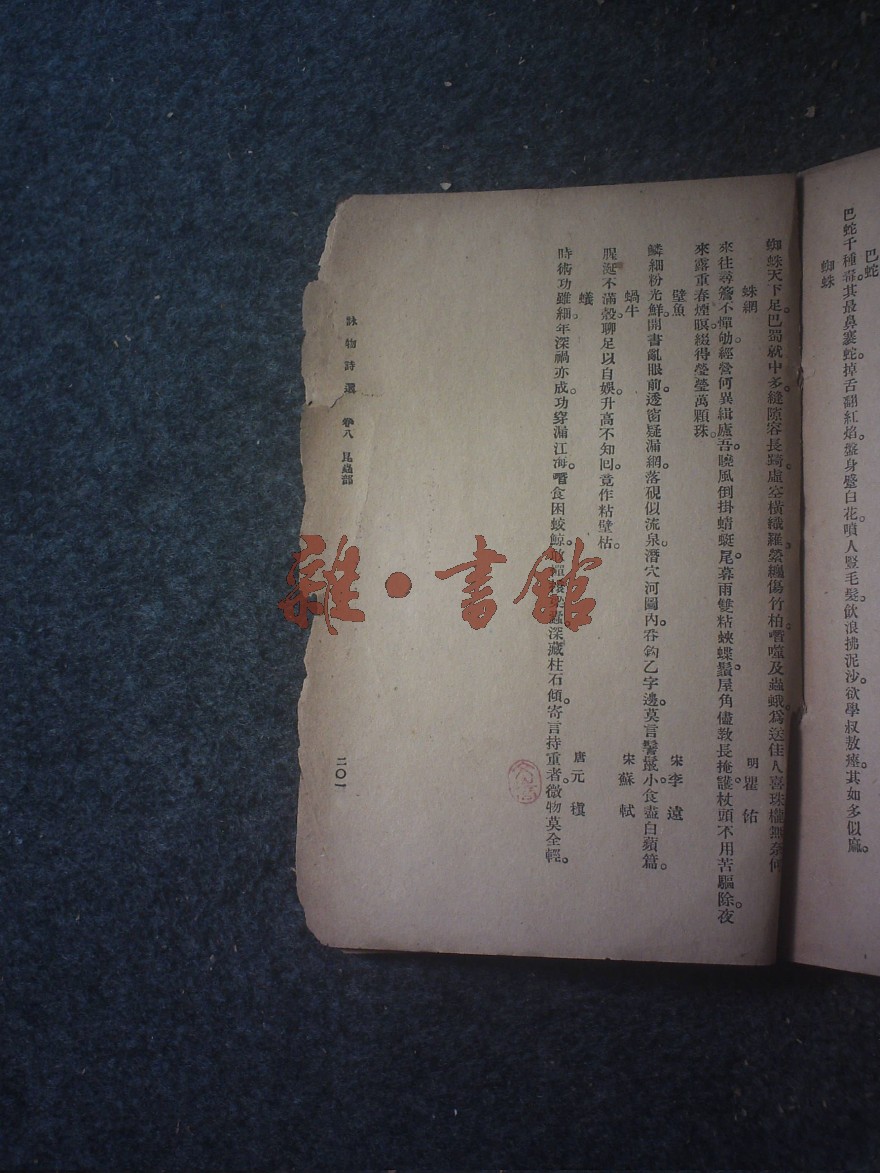 巴蛇
巴蛇千種毒。其最鼻褰蛇。掉舌翻紅焰。盤身蹙白花。噴人豎毛髮。飲浪拂泥沙。欲學叔敖瘞。其如多似麻。
蜘蛛
蜘蛛天下足。巴蜀就中多。縫隙容長踦。虛空橫織羅。縈纏傷竹柏。噆噬及蟲蛾。爲送佳人喜。珠櫳無奈何
蛛網 明瞿佑
來往尋簷不憚劬。經營何異緝廬吾。曉風倒掛蜻蜓尾。暮雨雙粘蛺蝶鬚。屋角儘教長掩護。杖頭不用苦驅除。夜
來露重春煙瞑。綴得瑩瑩萬顆珠。
壁魚 宋李遠
鱗細粉光鮮。開書亂眼前。透窗疑漏網。落硯似流泉。潛穴河圖內。吞鈎乙字邊。莫言鬐鬣小。食盡白蘋篇。
蝸牛 宋蘇軾
腥涎不滿殼。聊足以自娛。升高不知囘。竟作粘壁枯。
蟻 唐元稹
時術功雖細。年深禍亦成。功穿漏江海。噆食困蛟鯨。蟲深藏柱石傾。寄言持重者。微物莫全輕。
詠物詩選 卷八 昆蟲部
二〇一
雜·書館